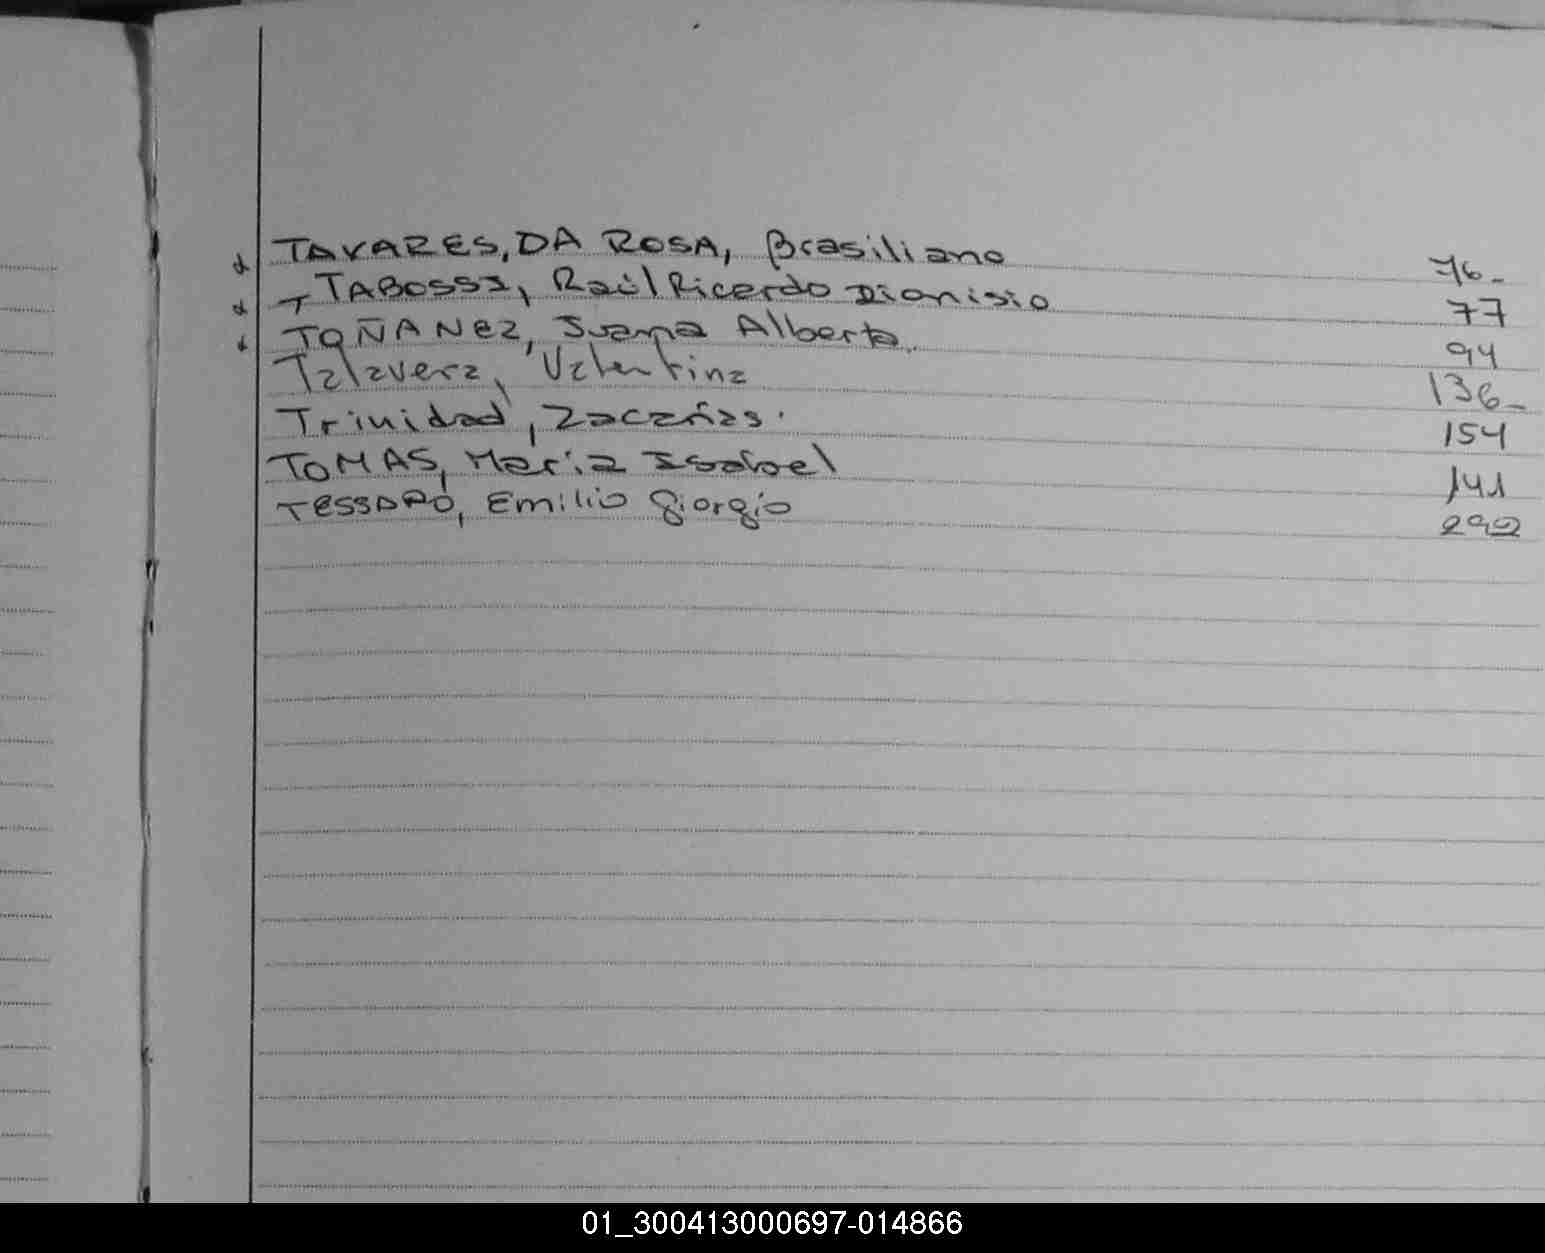 TAVARES, DA ROSA, Brasiliano 76-
TABOSSI, Raúl Ricardo Dionisio 77
TOÑANEZ, Juana Alberta. 94
Talavera, Valentina 136-
Trinidad, Zacarías. 154
TOMAS, María Isabel 141
TESSARO, Emilio Giorgio 292
01_300413000697-014866